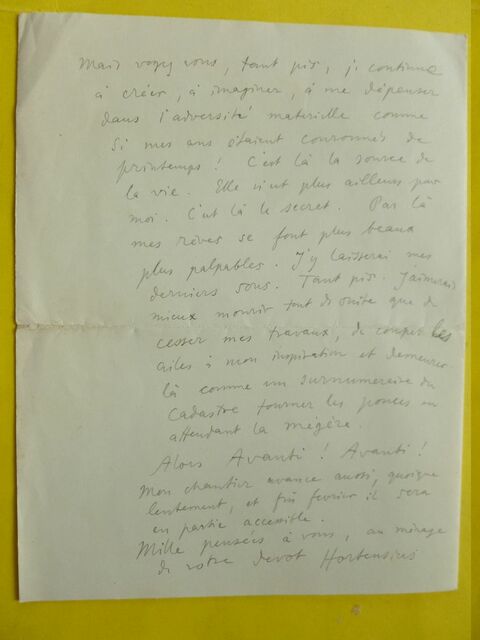 Mais voyez vous, tant pis, je continue
à créer, à imaginer, à me dépenser
dans l'adversité matérielle comme
si mes ans étaient couronnés de
printemps ! C'est là la source de
la vie. Elle n'est plus ailleurs pour
moi. C'est là le secret. Par là
mes rêves se font plus beaux
plus palpables. J'y laisserai mes
derniers sous. Tant pis. J'aimerais
mieux mourir tout de suite que de
cesser mes travaux, de couper les
ailes à mon inspiration et demeurer
là comme un surnuméraire du
cadastre tourner les pouces en
attendant la mégère.
Alors Avanti ! Avanti !
Mon chantier avance aussi, quoique
lentement, et fin fevrier il sera
en partie accessible.
Mille pensées à vous, au ménage
de votre devot